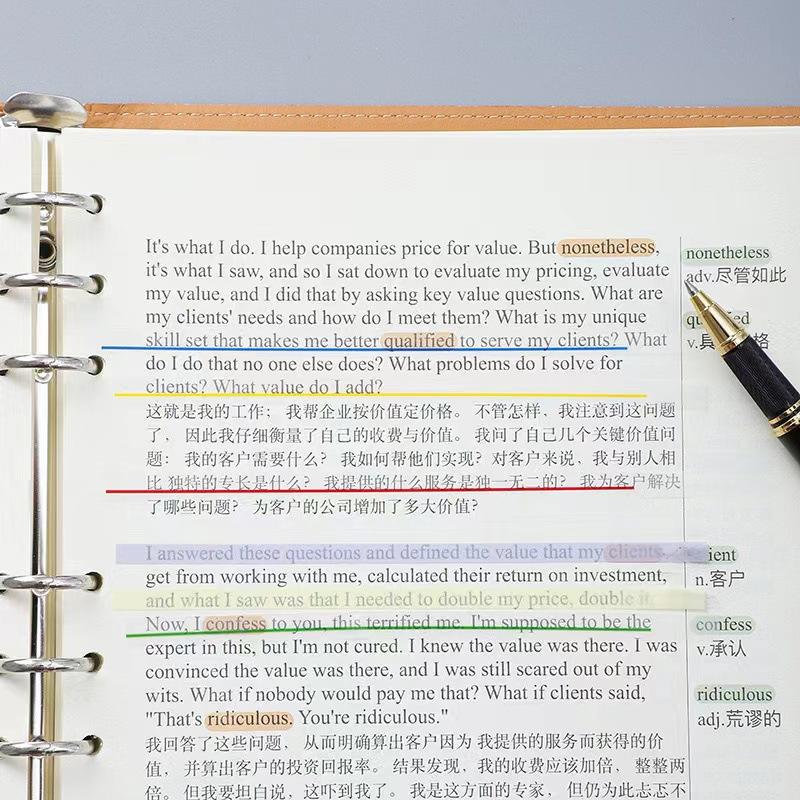 It's what I do. I help companies price for value. But nonetheless,
it's what I saw, and so I sat down to evaluate my pricing, evaluate
my value, and I did that by asking key value questions. What are
my clients' needs and how do I meet them? What is my unique
skill set that makes me better qualified to serve my clients? What
do I do that no one else does? What problems do I solve for
clients? What value do I add?
这就是我的工作； 我帮企业按价值定价格。 不管怎样，我注意到这问题
了， 因此我仔细衡量了自己的收费与价值。 我问了自己几个关键价值问
题： 我的客户需要什么？ 我如何帮他们实现？对客户来说，我与别人相
比 独特的专长是什么？ 我提供的什么服务是独一无二的？ 我为客户解决
了哪些问题？ 为客户的公司增加了多大价值？
I answered these questions and defined the value that my clients
get from working with me, calculated their return on investment,
and what I saw was that I needed to double my price, double
Now, I confess to you, this terrified me. I'm supposed to be the
expert in this, but I'm not cured. I knew the value was there. I was
convinced the value was there, and I was still scared out of my
wits. What if nobody would pay me that? What if clients said,
"That's ridiculous. You're ridiculous."
我回答了这些问题， 从而明确算出客户因为 我提供的服务而获得的价
值， 并算出客户的投资回报率。 结果发现，我的收费应该加倍， 整整两
倍。 但我要坦白说，这吓到我了。 我是这方面的专家， 但仍为此忐忑不
nonetheless
adv.尽管如此
v.具 格
ient
n.客户
confess
v.承认
ridiculous
adj.荒谬的